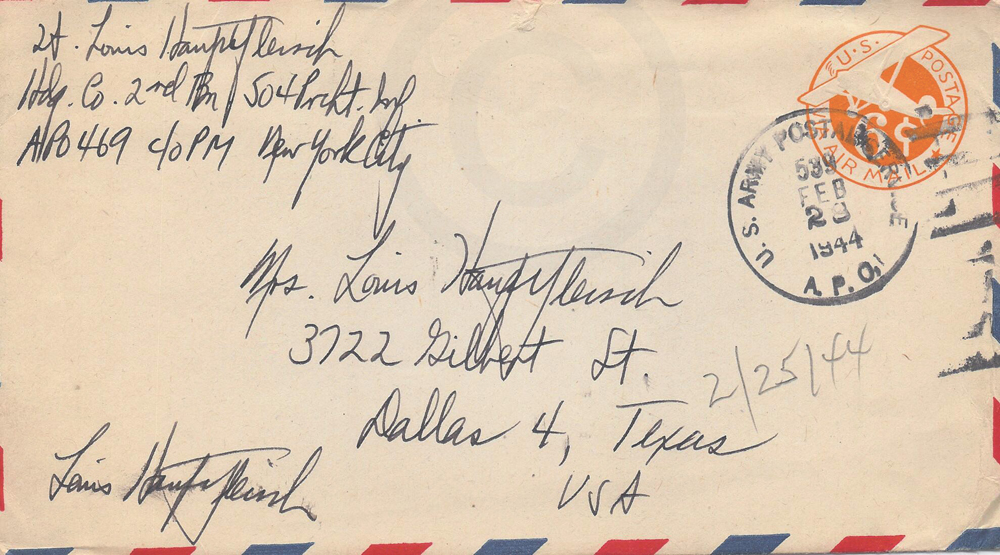 Lt. Louis Hauptfleisch
Hdq. Co. 2nd Bn, 504 Prcht. Inf
APO 469 c/o PM New York City
U.S. POSTAGE
6¢
VIA AIR MAIL
U.S. ARMY POSTAL SERVICE
539
FEB
23
1944
A.P.O.
Mrs. Louis Hauptfleisch
3722 Gilbert St.
2/25/44
Dallas 4, Texas
USA
Louis Hauptfleisch